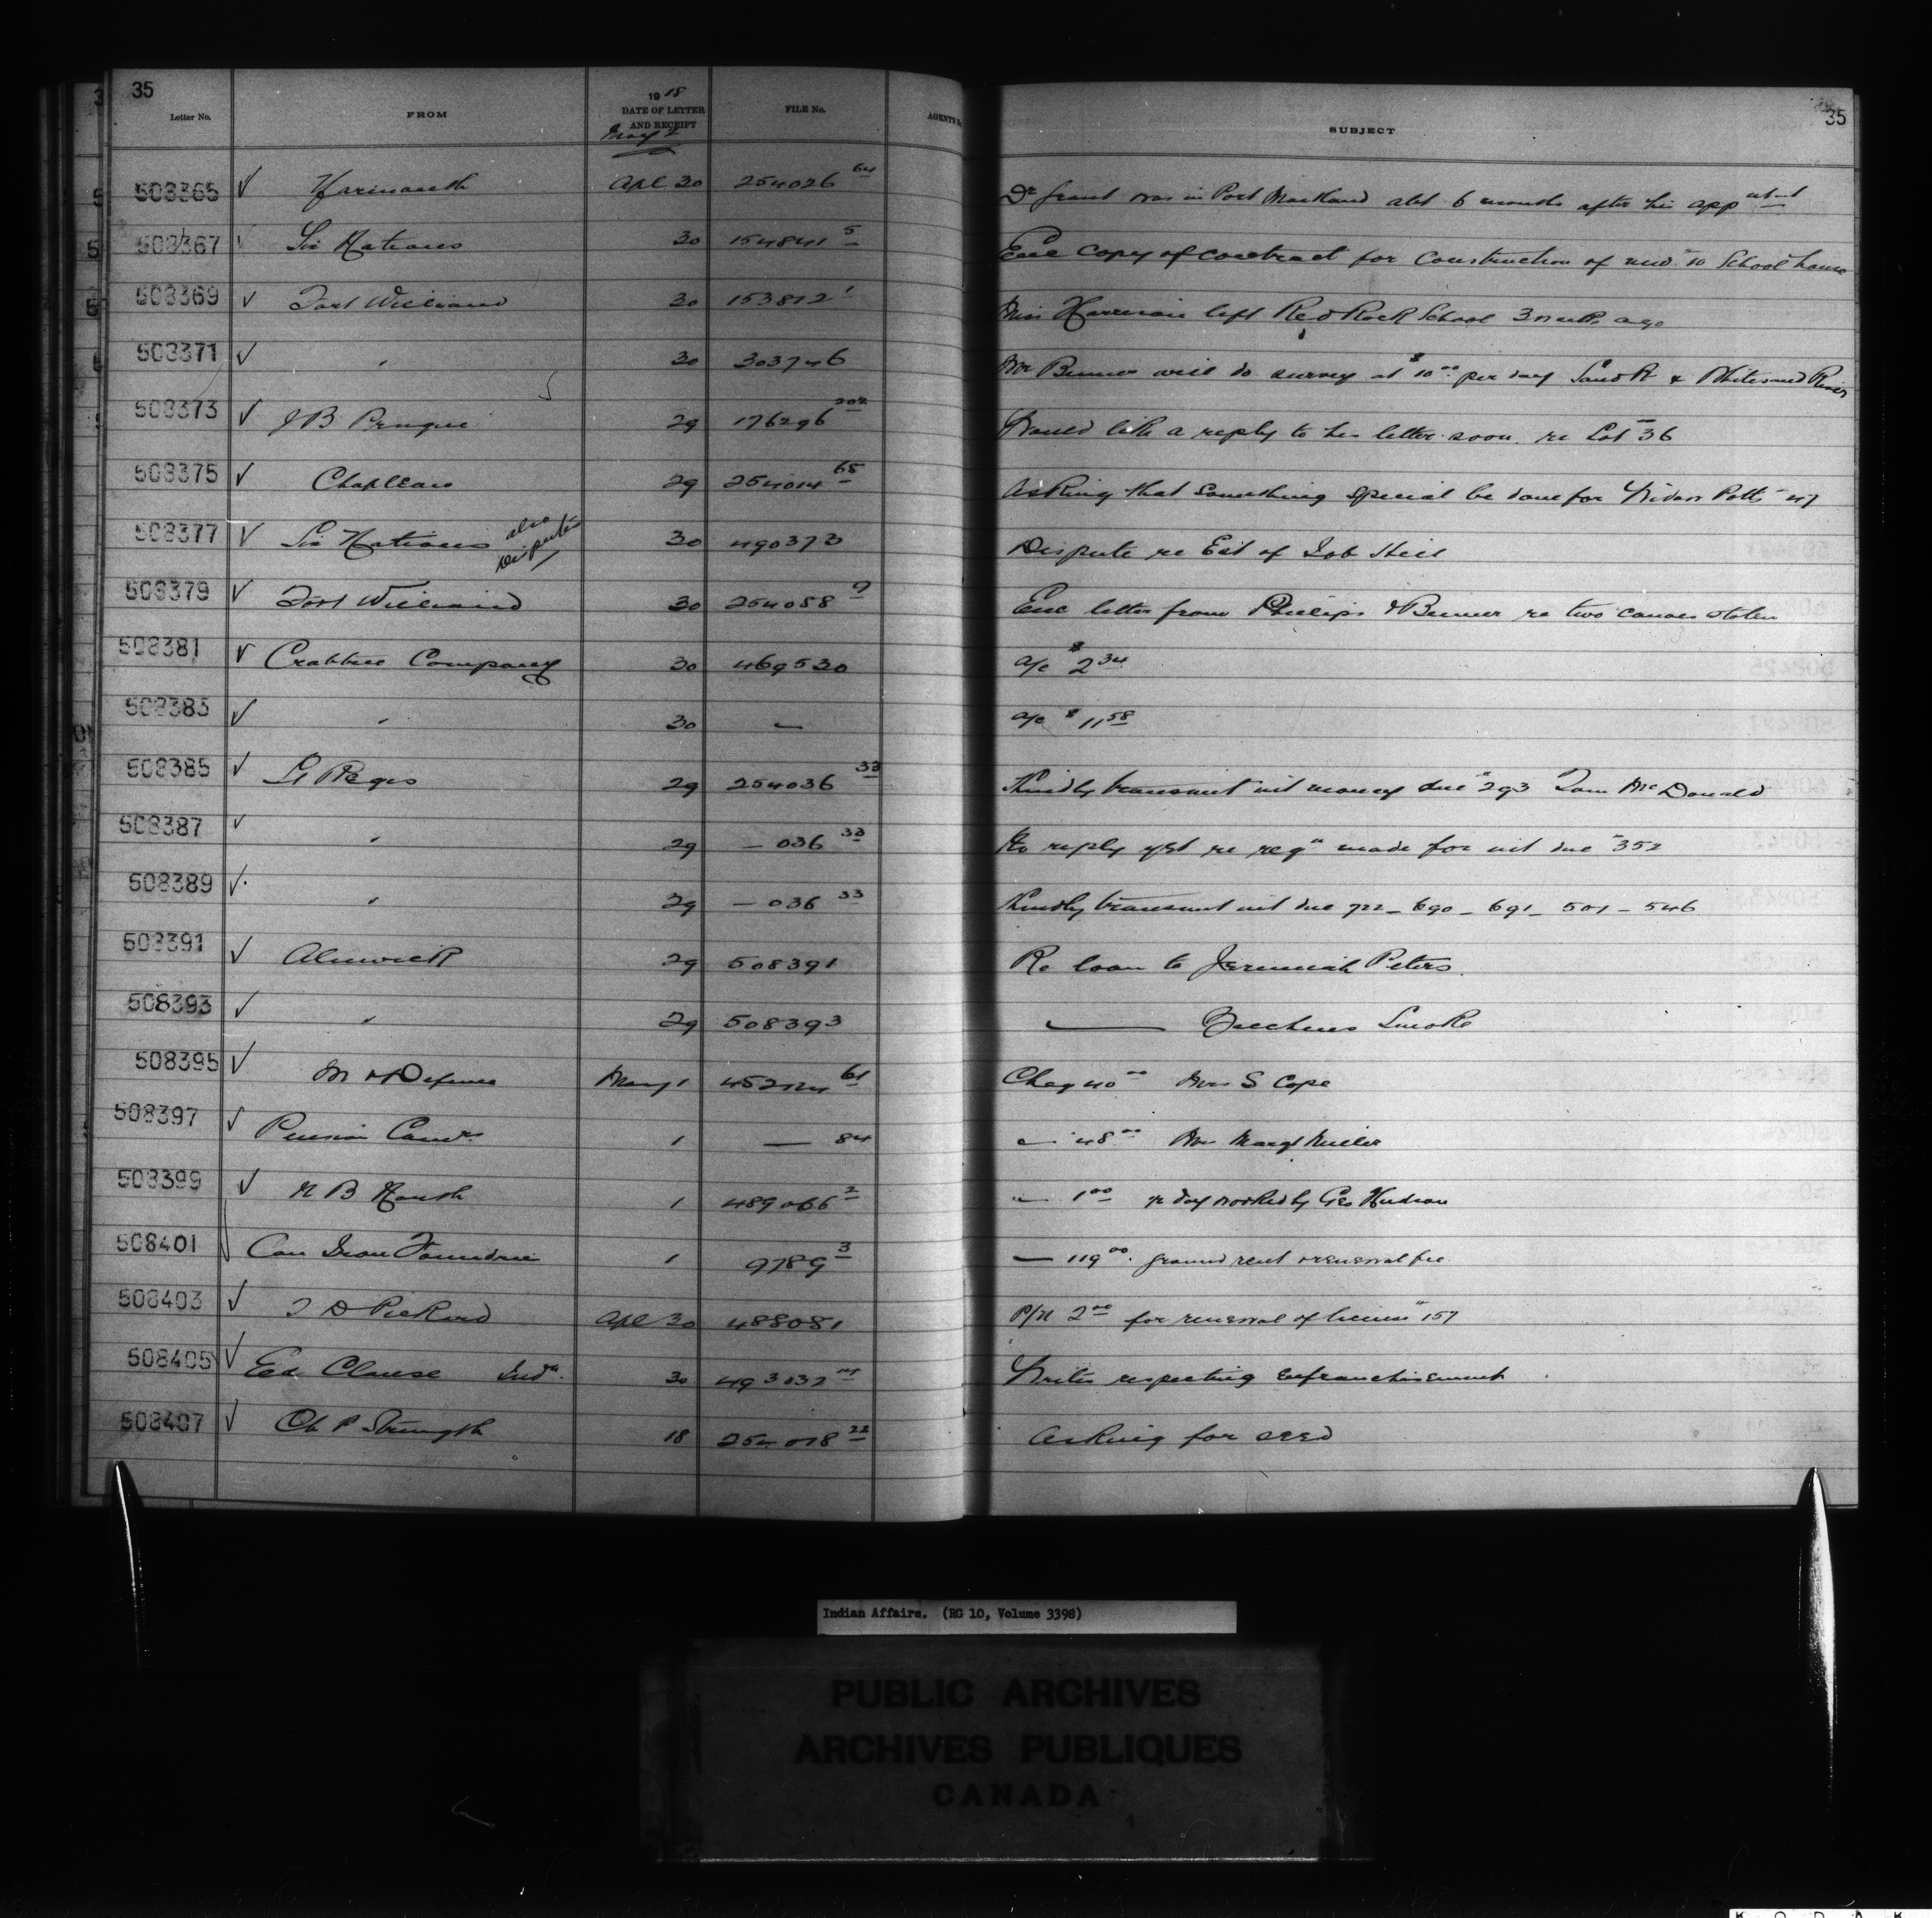 35
Letter No. FROM 1918 DATE OF LETTER AND RECEIPT FILE No. AGENT'S SUBJECT 35
May 2
508365 ✓ Yarmouth Apl 30 254026 64 Dr Grant was in Port Maitland abt 6 months after his app
508367 ✓ Six Nations 30 154841 5 Enc copy of contract for construction of new "10 School house
508369 ✓ Fort William 30 153812 1 Miss Harrison left Red Rock School 3 ago
508371 ✓ " 30 303746 Mr will do survey at $10 00 per day Sand R & Whitesand River
508373 ✓ J B 29 176296 202 Would like a reply to his letter soon re Lot 36
508375 ✓ Chapleau 29 254014 65 Asking that something special be done for Widow Potts "47
508377 ✓ Six Nations also Disputes 30 490373 Dispute re Est of Job Hill
508379 ✓ Fort William 30 254058 9 Enc letter from Philips & re two canoes stolen
508381 ✓ Crabtree Company 30 469530 a/c $2 34
508383 ✓ " 30 — a/c $11 58
508385 ✓ St Regis 29 254036 33 Kindly transmit int money due "293 Tom McDonald
508387 ✓ " 29 — 036 33 No reply yet re reqn made for int due "352
508389 ✓ " 29 — 036 33 Kindly transmit int due 722 – 690 – 691 – 501 – 546
508391 ✓ Alnwick 29 508391 Re loan to Jeremiah Peters
508393 ✓ " 29 508393 — Smoke
508395 ✓ M & Defence May 1 452124 61 Cheq 40 00 Mrs S Cope
508397 ✓ Pension Comrs 1 — 84 — 48 00 Mrs Margt Miller
508399 ✓ 1 489066 2 — 1 00 re day worked by Geo Hudson
508401 ✓ Can Iron 1 9789 3 — 119 00 ground rent & renewal fee
508403 ✓ D Pickard Apl 30 488081 P/N 2 00 for renewal of license "157
508405 ✓ Ed Clause Indn 30 493032 Writes respecting enfranchisement
508407 ✓ Ch P Strength 18 254018 22 Asking for seed
Indian Affairs. (RG 10, Volume 3398)
PUBLIC ARCHIVES
ARCHIVES PUBLIQUES
CANADA